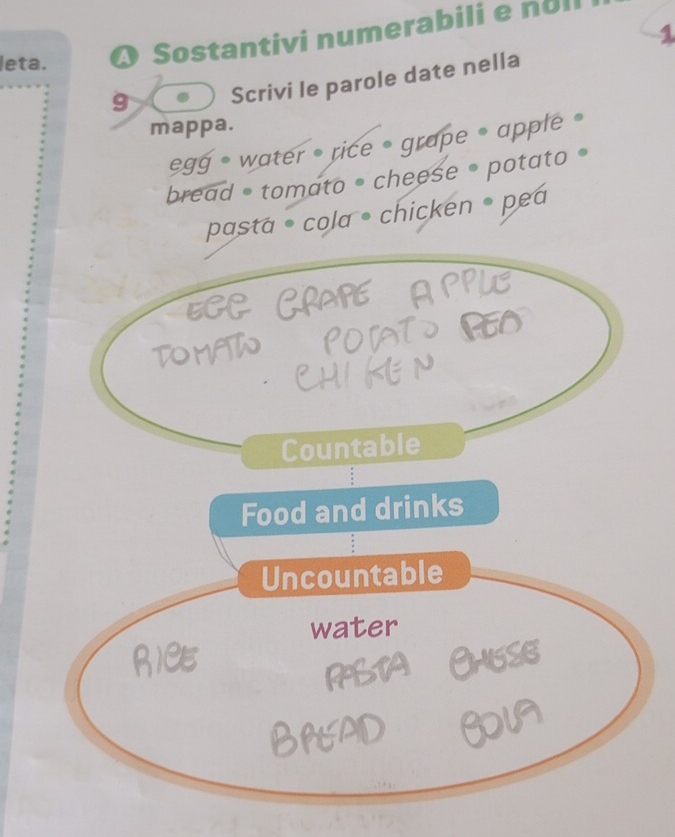 leta.
A Sostantivi numerabili e non
1
9 Scrivi le parole date nella
mappa.
egg • water • rice • grape • apple •
bread • tomato • cheese • potato •
pasta • cola • chicken • pea
EGG GRAPE APPLE
TOMATO POTATO PEA
CHIKEN
Countable
Food and drinks
Uncountable
water
RICE PASTA CHEESE
BREAD COLA